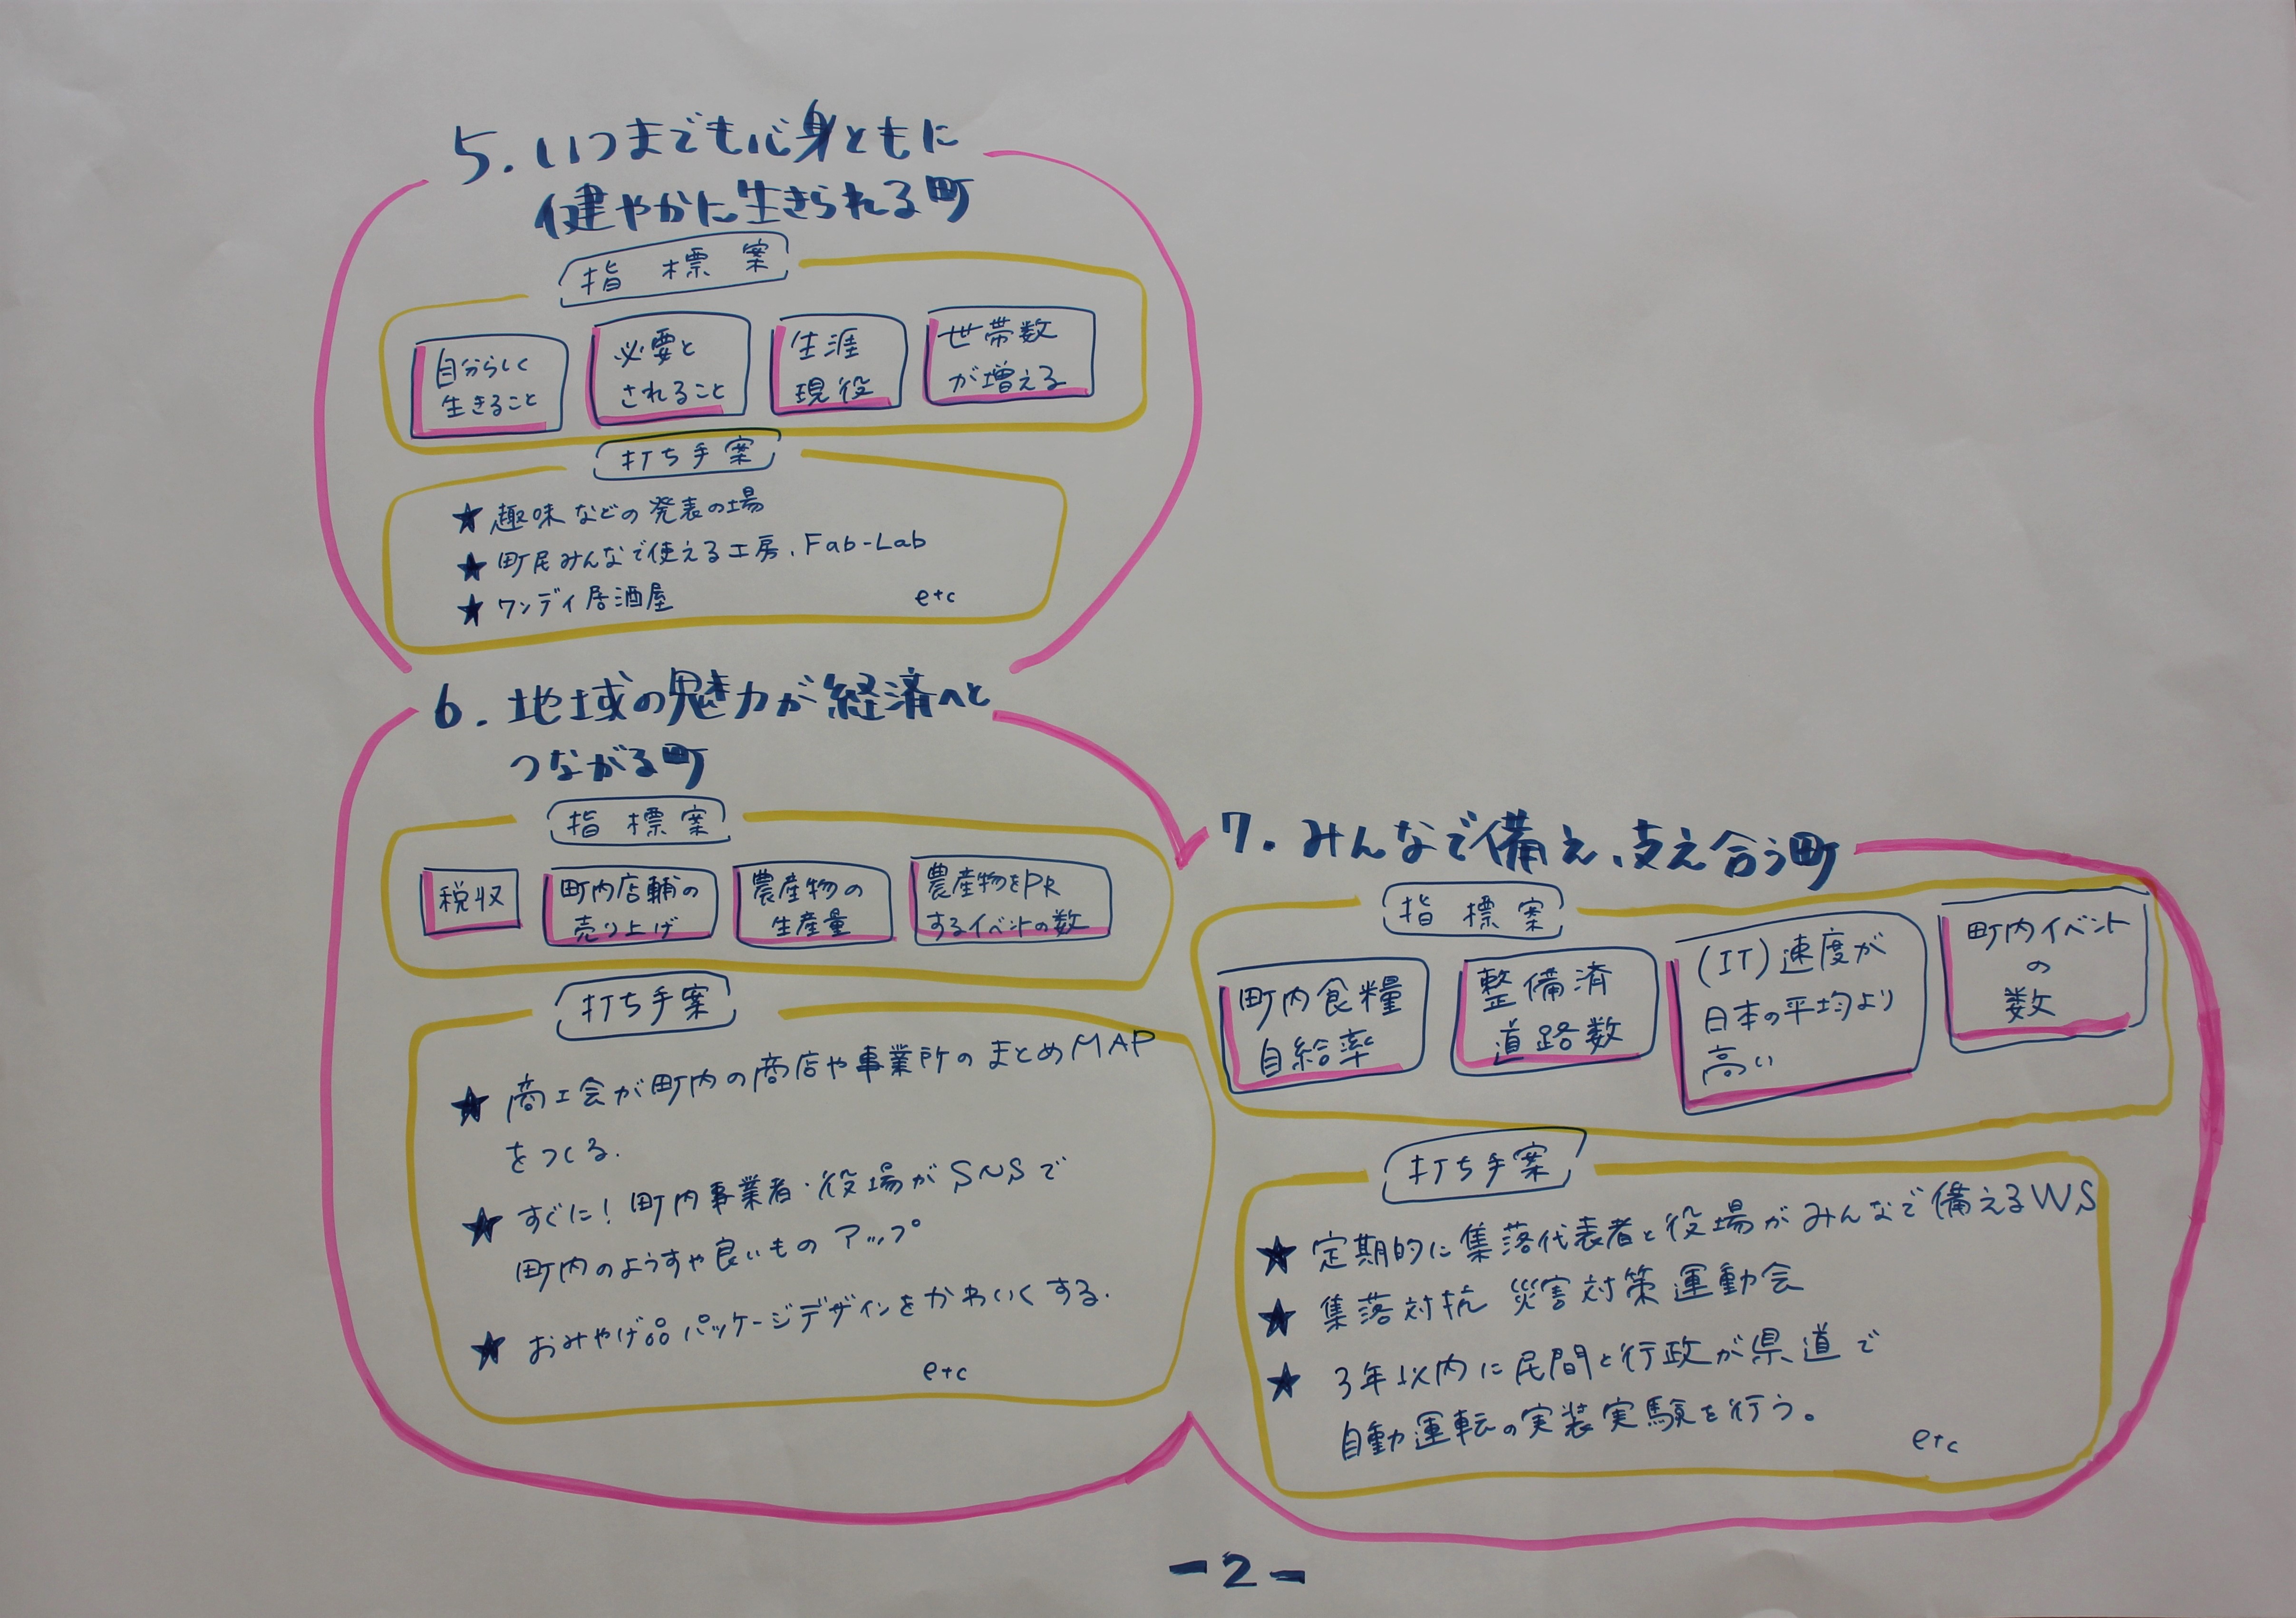 5. いつまでも心身ともに
健やかに生きられる町
指標案
自分らしく
生きること
必要と
されること
生涯
現役
世帯数
が増える
打ち手案
★ 趣味などの発表の場
★ 町民みんなで使える工房、Fab-Lab
★ ワンデイ居酒屋
etc
6. 地域の魅力が経済へと
つながる町
指標案
税収
町内店輔の
売り上げ
農産物の
生産量
農産物をPR
するイベントの数
打ち手案
★ 商工会が町内の商店や事業所のまとめMAP
をつくる.
★ すぐに！町内事業者・役場がSNSで
町内のようすや良いものアップ
★ おみやげ品パッケージデザインをかわいくする.
etc
7. みんなで備え、支え合う町
指標案
町内食糧
自給率
整備済
道路数
(IT)速度が
日本の平均より
高い
町内イベント
の
数
打ち手案
★ 定期的に集落代表者と役場がみんなで備えるWS
★ 集落対抗 災害対策運動会
★ 3年以内に民間と行政が県道で
自動運転の実装実験を行う。
etc
-2-